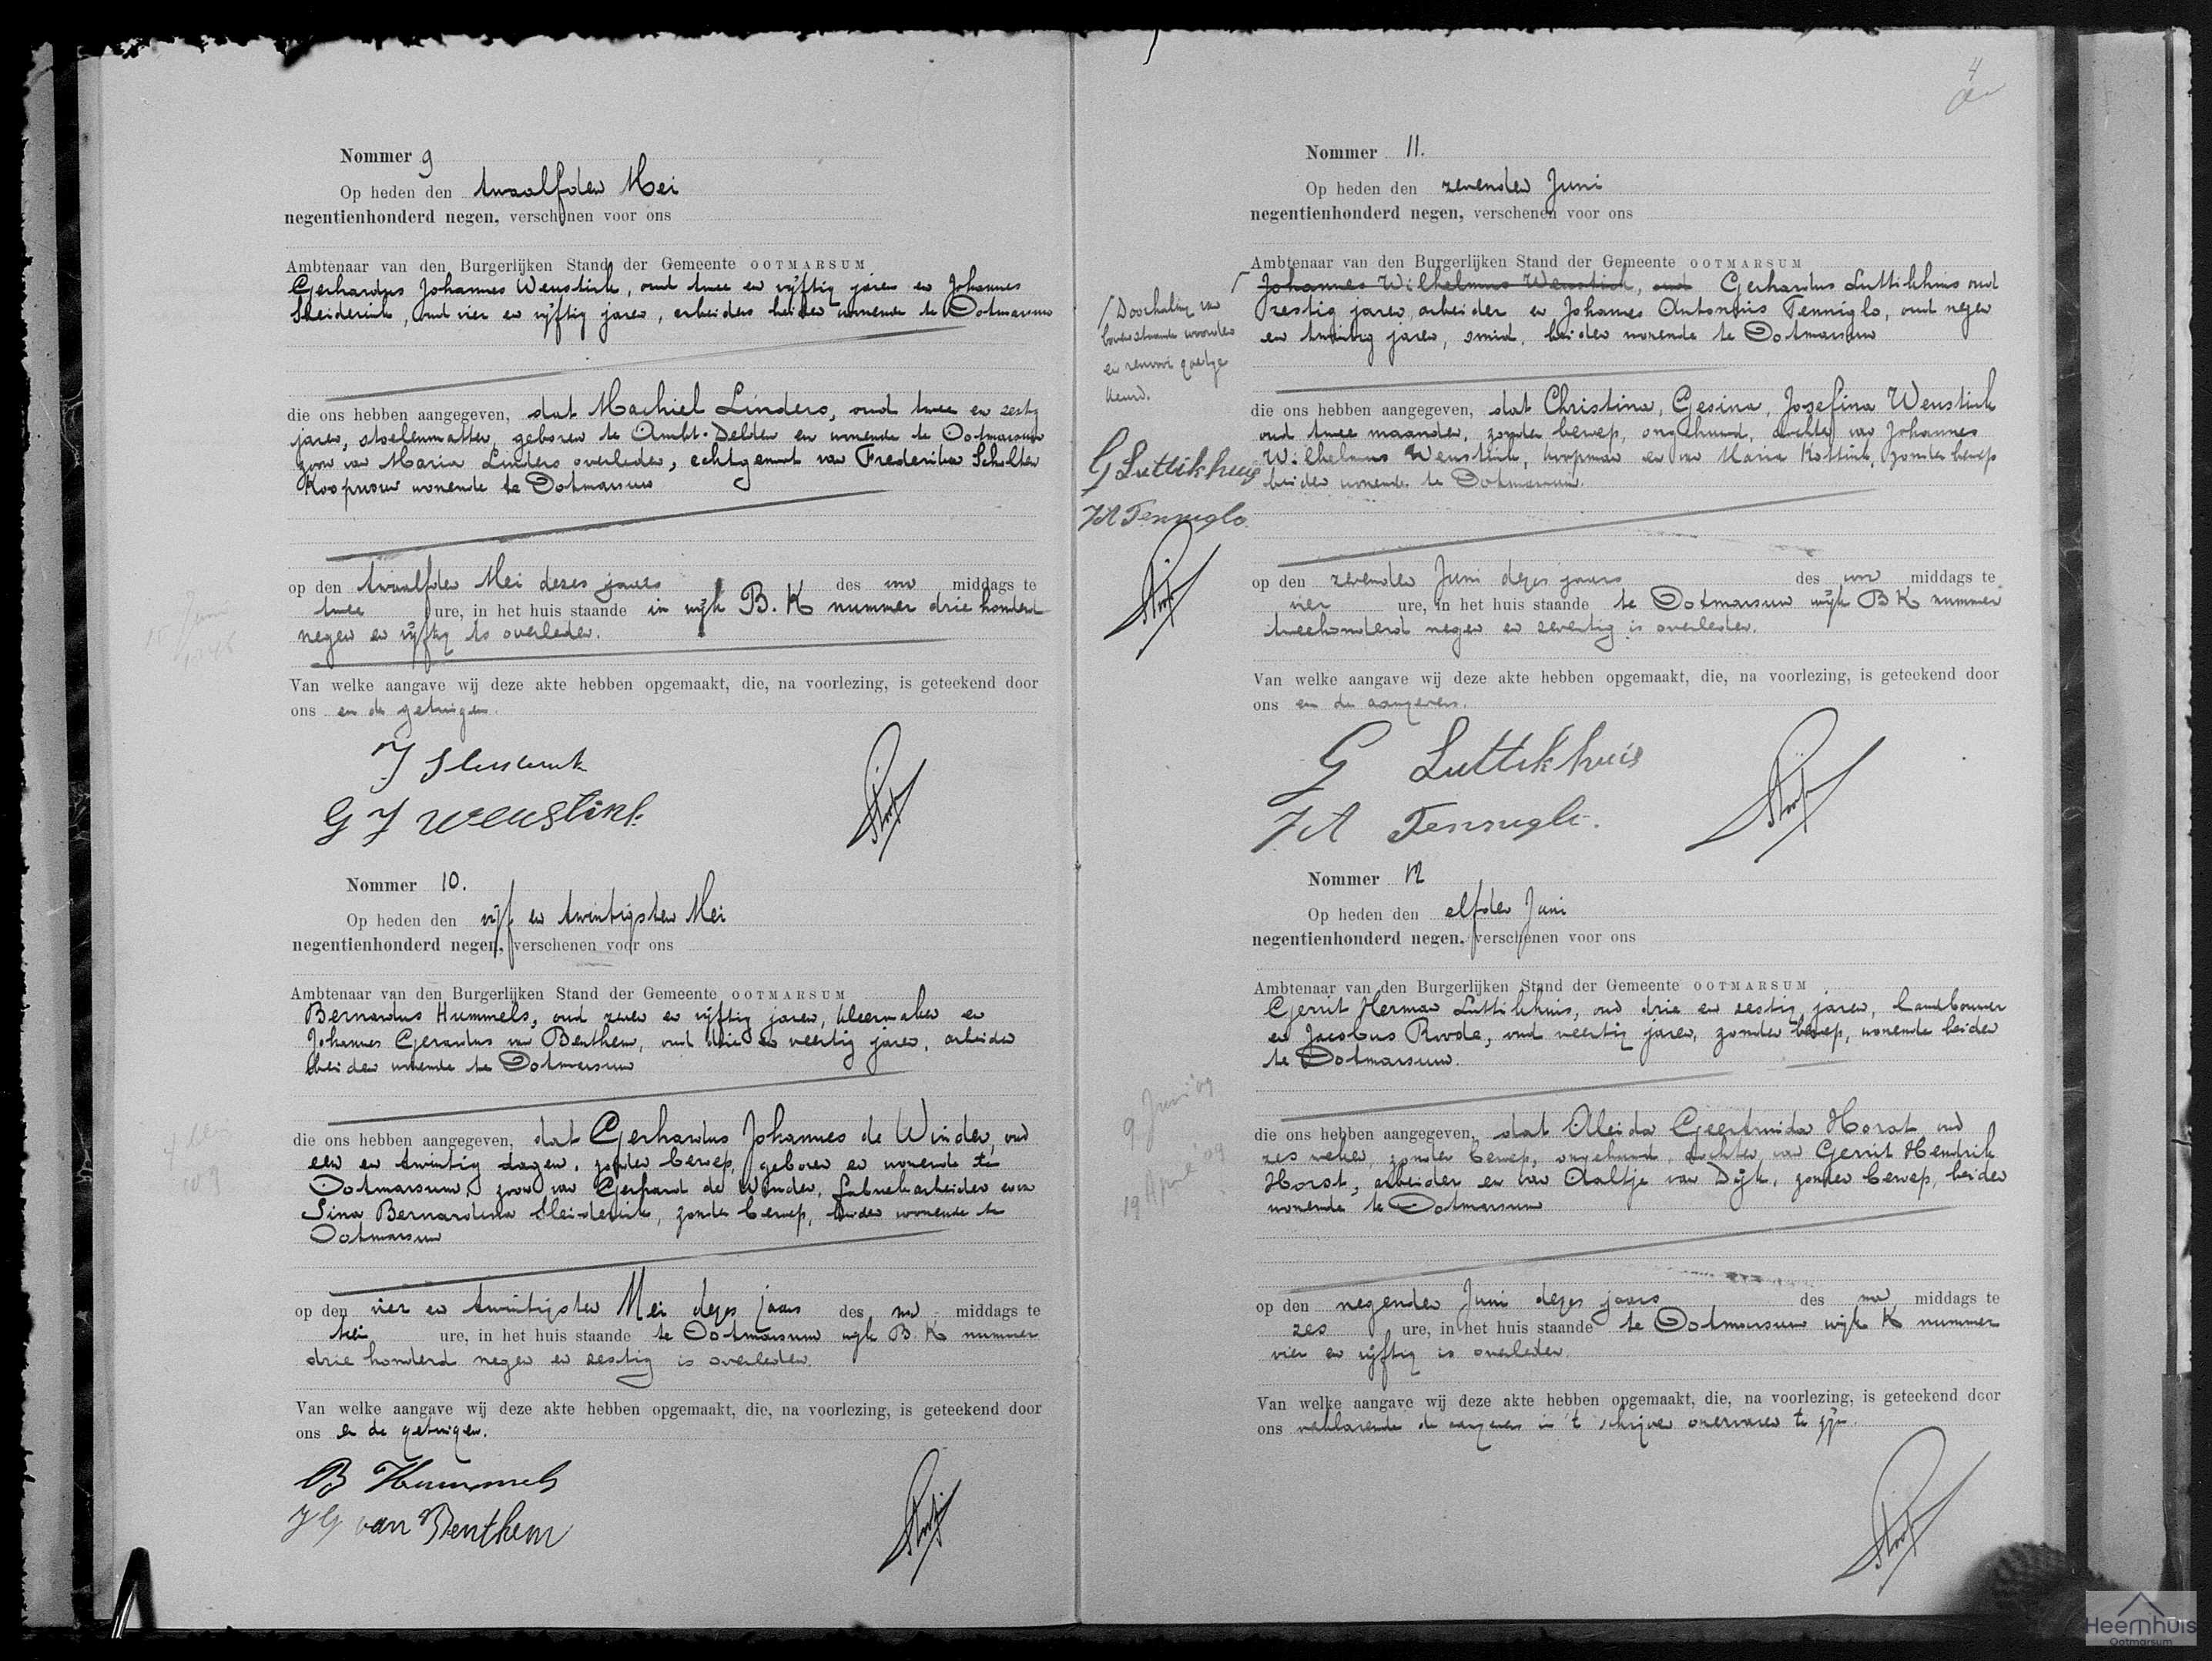 Nommer 9
Op heden den twaalfden Mei
negentienhonderd negen, verschenen voor ons
Ambtenaar van den Burgerlijken Stand der Gemeente OOTMARSUM
Gerhardus Johannes Weustink, oud twee en vijftig jaren en Johannes
Sleiderink, oud vier en vijftig jaren, arbeiders beiden wonende te Ootmarsum
die ons hebben aangegeven, dat Machiel Linders, oud twee en zestig
jaren, stoelenmatter, geboren te Ambt-Delden en wonende te Ootmarsum
zoon van Maria Linders overleden, echtgenoot van Frederika Scholten
Koopvrouw wonende te Ootmarsum
op den twaalfden Mei dezes jaars des na middags te
twee ure, in het huis staande in wijk B. K nummer drie honderd
negen en vijftig is overleden.
Van welke aangave wij deze akte hebben opgemaakt, die, na voorlezing, is geteekend door
ons en de getuigen.
J Sleiderink
G J Weustink
Nommer 10.
Op heden den vijf en twintigsten Mei
negentienhonderd negen, verschenen voor ons
Ambtenaar van den Burgerlijken Stand der Gemeente OOTMARSUM
Bernardus Hummels, oud zeven en vijftig jaren, kleermaker en
Johannes Gerardus van Benthem, oud drie en veertig jaren, arbeider
beiden wonende te Ootmarsum
die ons hebben aangegeven, dat Gerhardus Johannes de Winder, oud
een en twintig dagen, zonder beroep, geboren en wonende te
Ootmarsum, zoon van Gerhard de Winder, fabriekarbeider en van
Sina Bernardina Sleiderink, zonder beroep, beiden wonende te
Ootmarsum
op den vier en twintigsten Mei dezes jaars des na middags te
ure, in het huis staande te Ootmarsum wijk B. K nummer
drie honderd negen en zestig is overleden.
Van welke aangave wij deze akte hebben opgemaakt, die, na voorlezing, is geteekend door
ons en de getuigen.
B Hummels
J G van Benthem
4
Nommer 11.
Op heden den zevenden Juni
negentienhonderd negen, verschenen voor ons
Ambtenaar van den Burgerlijken Stand der Gemeente OOTMARSUM
Johannes Wilhelmus Weustink, oud Gerhardus Luttikhuis oud
zestig jaren, arbeider en Johannes Antonius Tenniglo, oud negen
en twintig jaren, smid, beiden wonende te Ootmarsum
Doorhaling van
bovenstaande woorden
en renvooi goedge
keurd.
G Luttikhuis
J A Tenniglo
die ons hebben aangegeven, dat Christina, Gesina, Josefina Weustink
oud twee maanden, zonder beroep, ongehuwd, dochter van Johannes
Wilhelmus Weustink, koopman en van Maria Kottink, zonder beroep
beiden wonende te Ootmarsum.
op den zevenden Juni dezes jaars des voor middags te
vier ure, in het huis staande te Ootmarsum wijk B K nummer
tweehonderd negen en zeventig is overleden.
Van welke aangave wij deze akte hebben opgemaakt, die, na voorlezing, is geteekend door
ons en de aangevers.
G Luttikhuis
J A Tenniglo.
Nommer 12
Op heden den elfden Juni
negentienhonderd negen, verschenen voor ons
Ambtenaar van den Burgerlijken Stand der Gemeente OOTMARSUM
Gerrit Herman Luttikhuis, oud drie en zestig jaren, landbouwer
en Jacobus Roode, oud veertig jaren, zonder beroep, wonende beiden
te Ootmarsum.
9 Juni '09
19 April '09
die ons hebben aangegeven, dat Aleida Geertruida Horst oud
zes weken, zonder beroep, ongehuwd, dochter van Gerrit Hendrik
Horst, arbeider en van Aaltje van Dijk, zonder beroep, beiden
wonende te Ootmarsum
op den negenden Juni dezes jaars des na middags te
zes ure, in het huis staande te Ootmarsum wijk K nummer
vier en vijftig is overleden.
Van welke aangave wij deze akte hebben opgemaakt, die, na voorlezing, is geteekend door
ons verklarende de aangevers in 't schrijven onervaren te zijn.
Heemhuis
Ootmarsum